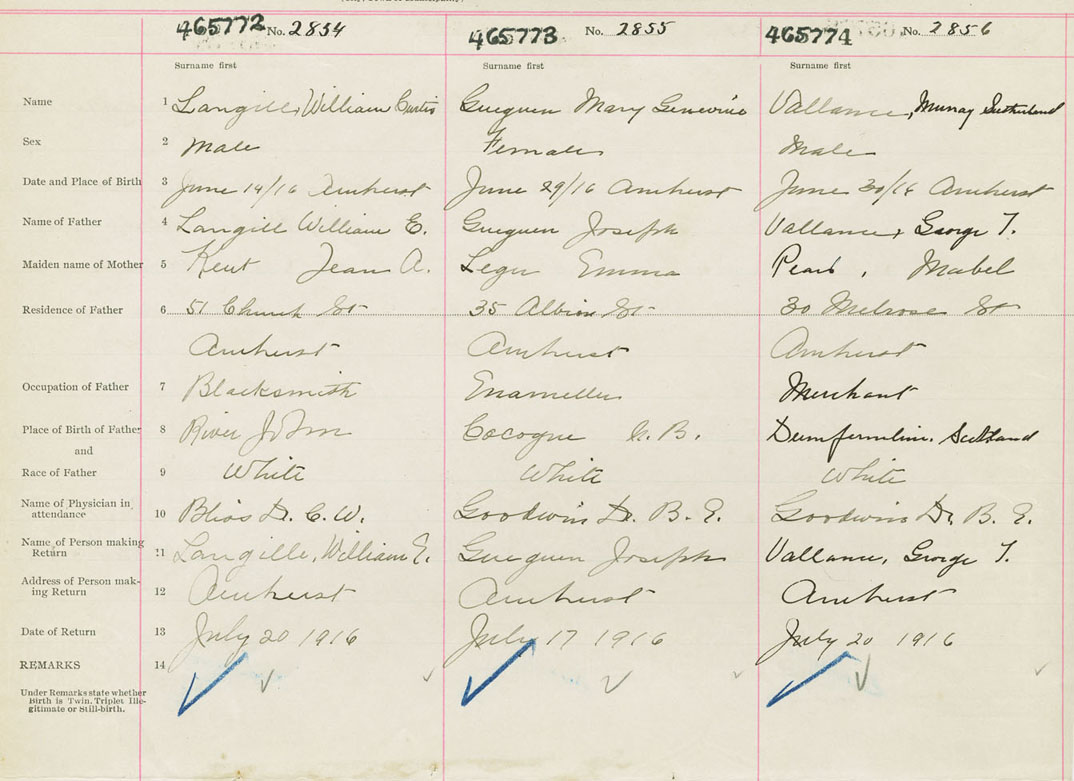 465772 No. 2854 465773 No. 2855 465774 No. 2856
Surname first Surname first Surname first
Name 1 Langille, William Curtis Gueguen Mary Genevive Vallance, Murray Sutherland
Sex 2 Male Female Male
Date and Place of Birth 3 June 14/16 Amherst June 29/16 Amherst June 30/16 Amherst
Name of Father 4 Langill William E. Gueguen Joseph Vallance, George T.
Maiden name of Mother 5 Kent Jean A. Leger Emma Mabel
Residence of Father 6 51 Church St 35 Albion St 30 Melrose St
Amherst Amherst Amherst
Occupation of Father 7 Blacksmith Enameller Merchant
Place of Birth of Father 8 River John Cocogne N.B. Dumfermline, Scotland
and
Race of Father 9 White White White
Name of Physician in
attendance 10 Bliss Dr. C. W. Goodwin Dr. B. E. Goodwin Dr. B. E.
Name of Person making
Return 11 Langille, William E. Gueguen Joseph Vallance, George T.
Address of Person mak-
ing Return 12 Amherst Amherst Amherst
Date of Return 13 July 20 1916 July 17 1916 July 20 1916
REMARKS 14
Under Remarks state whether
Birth is Twin, Triplet Ille-
gitimate or Still-birth.